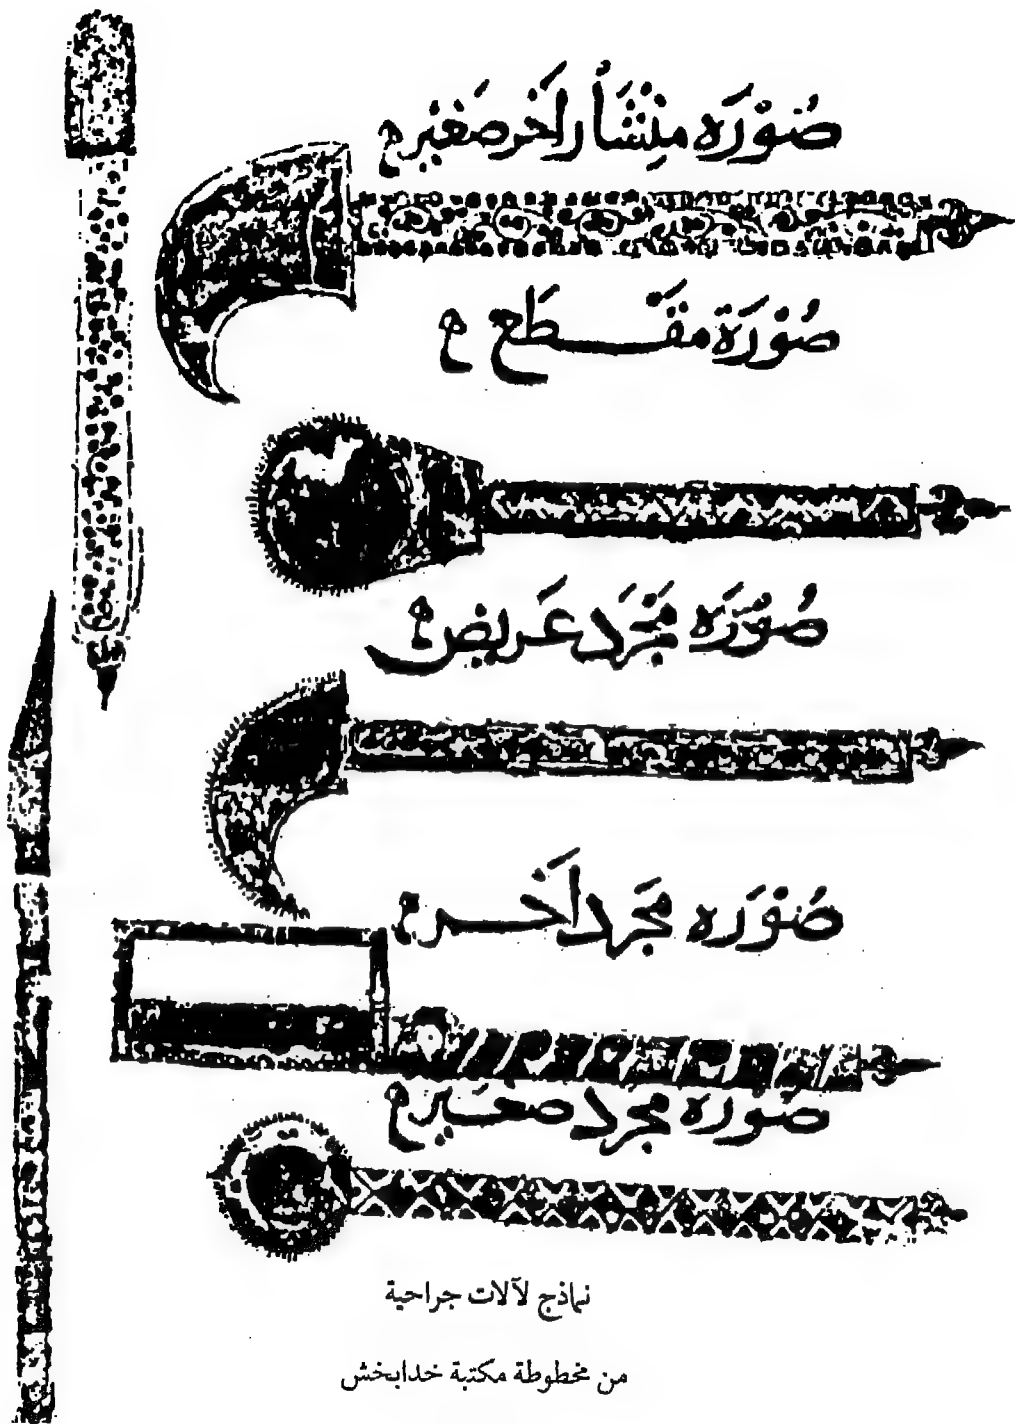 صُوْرَه مِنْشَار اٰخَر صَغِيْر م
صُوْرَة مَقْطَع م
صُوْرَه مَجْرَد عَرِيض م
صُوْرَه مَجْرَد اٰخَر م
صُوْرَه مَجْرَد صَغِير م
نماذج لآلات جراحية
من مخطوطة مكتبة خدابخش